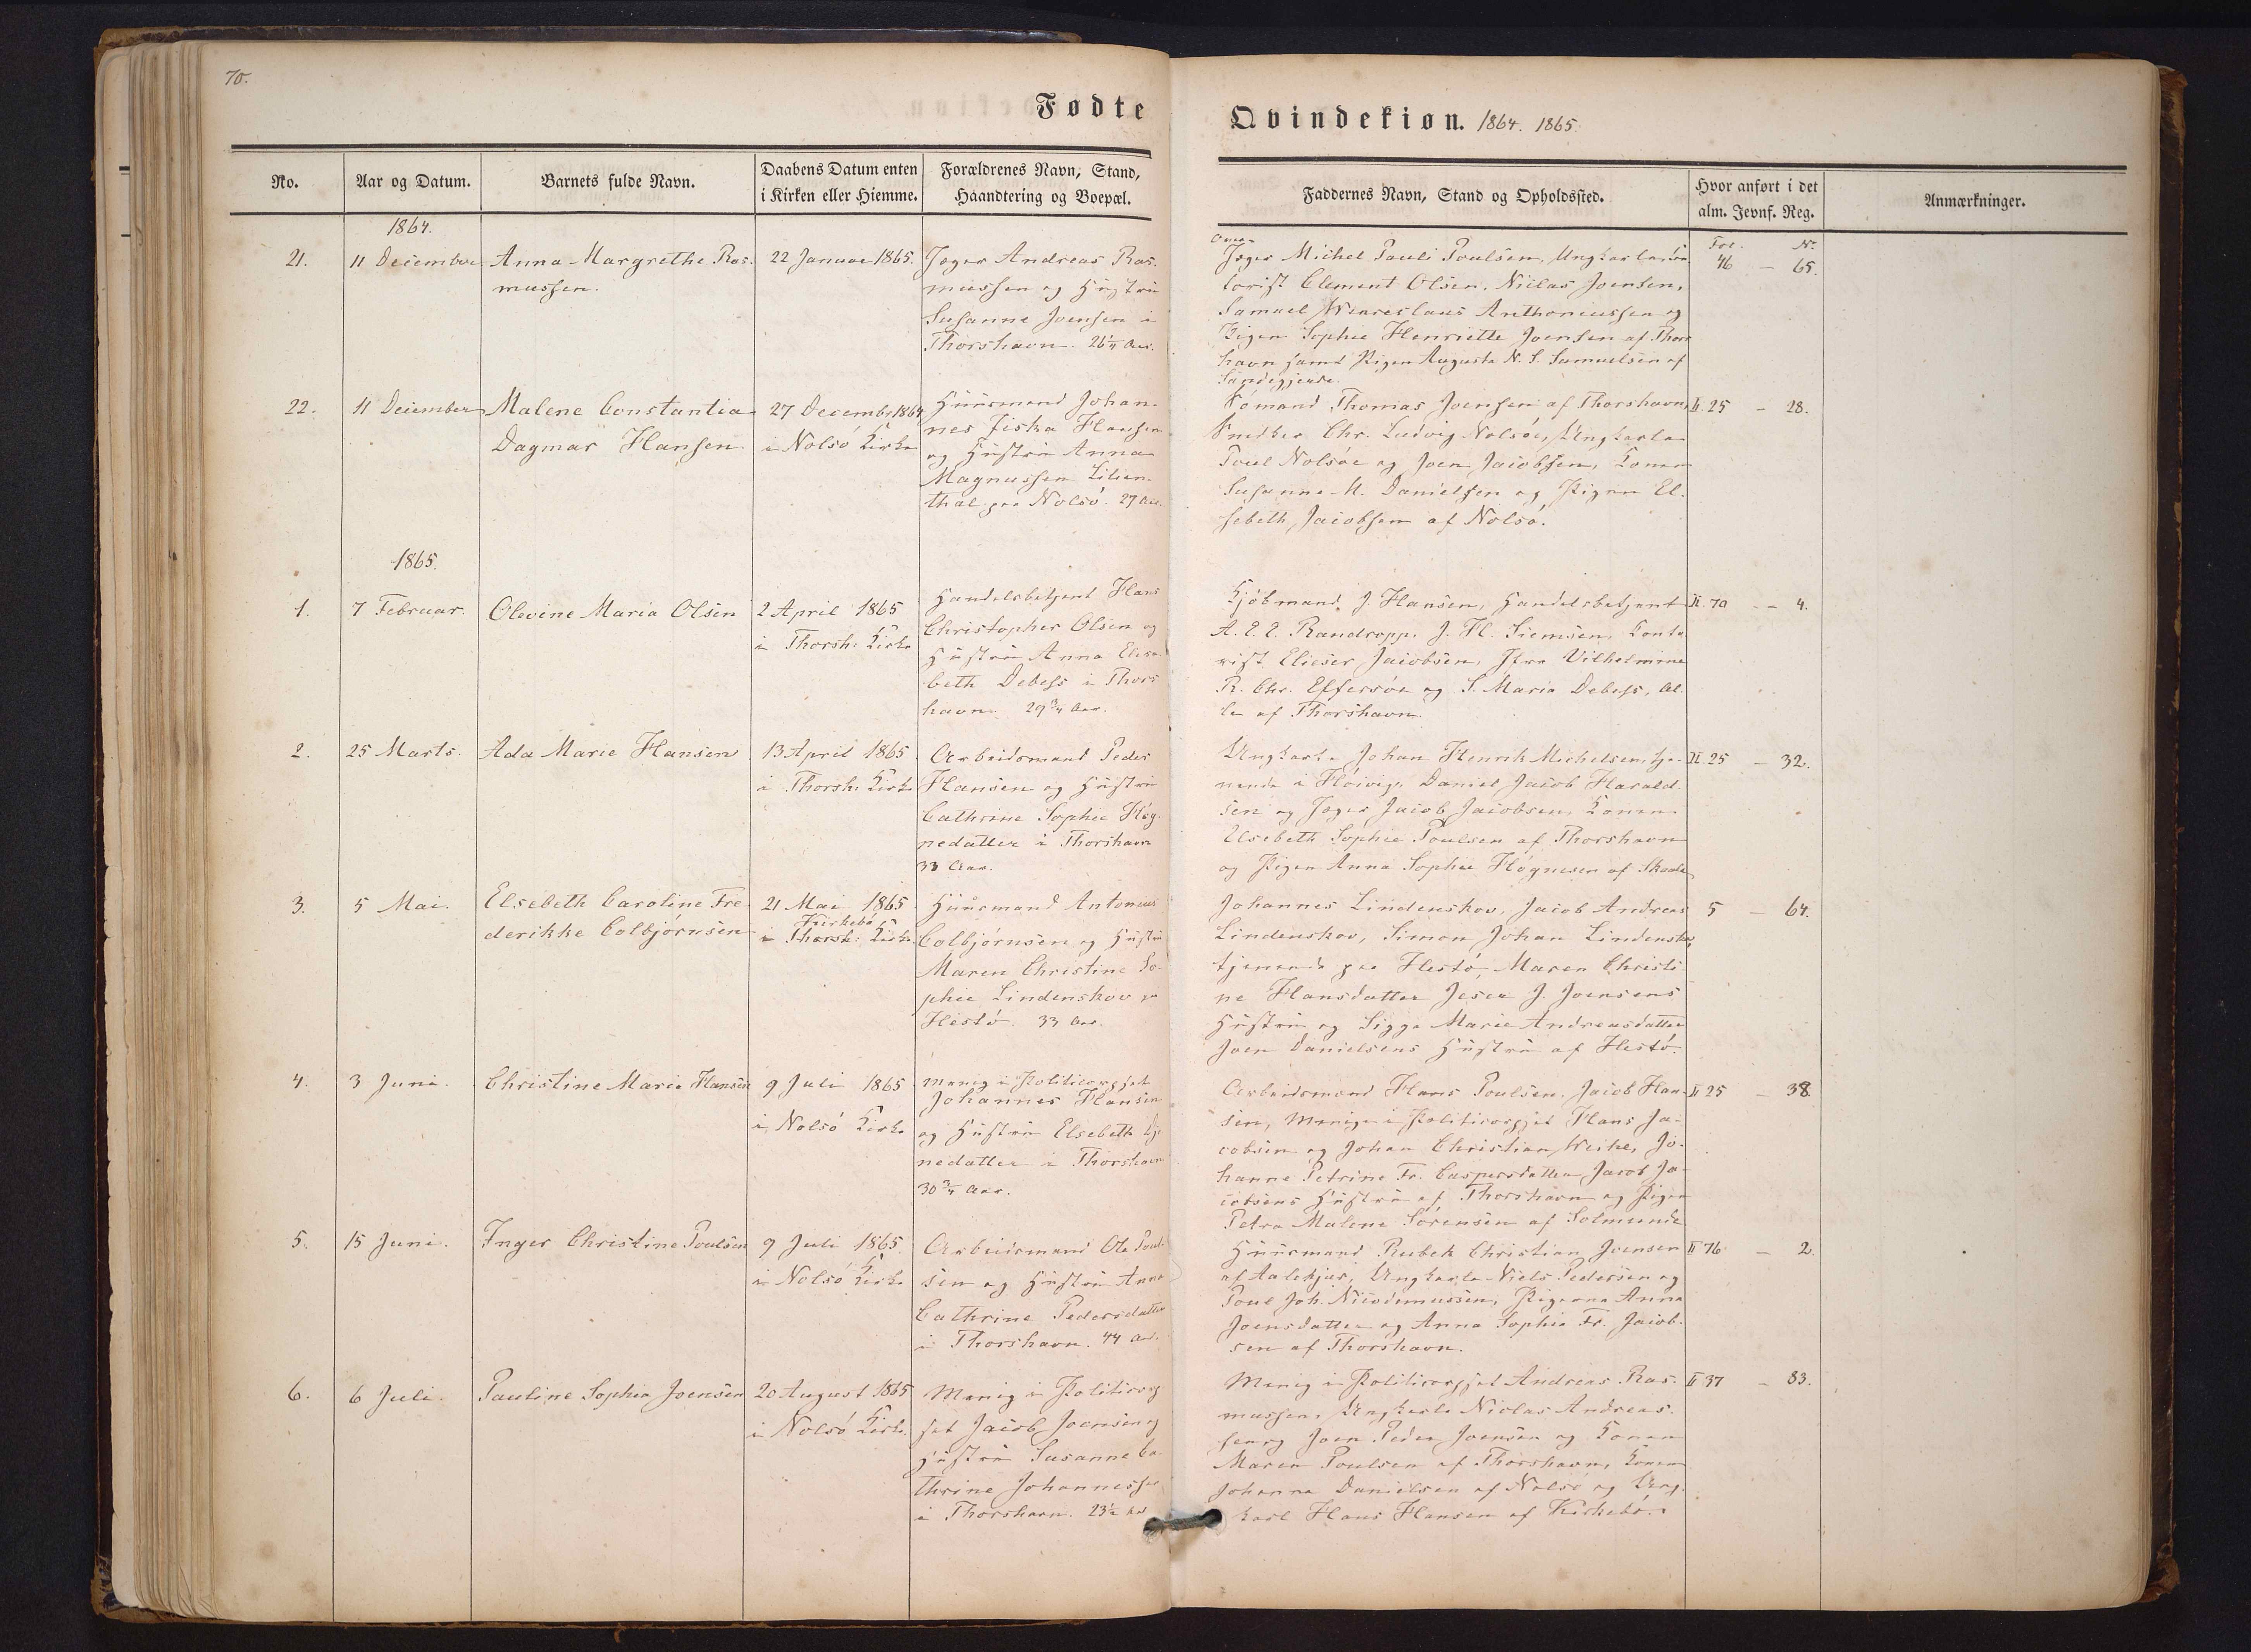 70.
Fødte
Qvindekiøn. 1864. 1865.
No.
Aar og Datum.
Barnets fulde Navn.
Daabens Datum enten
i Kirken eller Hiemme.
Forældrenes Navn, Stand,
Haandtering og Boepæl.
Faddernes Navn, Stand og Opholdssted.
Hvor anført i det
alm. Jevnf. Reg.
Anmærkninger.
1864.
21.
11 December
Anna Margrethe Ras-
mussen.
22 Januar 1865.
Jæger Andreas Ras-
mussen og Hustru
Susanne Joensen i
Thorshavn. 26 1/4 Aar.
Jæger Michel Pauli Poulsen, Ungkarlene
Clement Olsen, Niclas Joensen,
Samuel Wenceslaus Anthoniussen og
Pigen Sophie Henriette Joensen af Thors
havn samt Pigen Augusta N. S. Samuelsen af
Sandegjerde.
Fol. No.
46 – 65.
22.
11 December
Malene Constantia
Dagmar Hansen
27 Decembr 1864
i Nolsö Kirke
Huusmand Johan-
nes Jiska Hansen
og Hustru Anna
Magnussen Lilien-
thal paa Nolsö. 27 Aar.
Sömand Thomas Joensen af Thorshavn,
Snedker Chr. Ludvig Nolsöe, Ungkarlene
Poul Nolsöe og Joen Jacobsen, Konen
Susanne M. Danielsen og Pigen El-
sebeth Jacobsen af Nolsö.
II. 25 – 28.
1865.
1.
7 Februar.
Olevine Maria Olsen
2 April 1865
i Thorsh: Kirke
Handelsbetjent Hans
Christopher Olsen og
Hustru Anna Elisa-
beth Debess i Thors
havn. 29 3/4 Aar.
Kjöbmand J. Hansen, Handelsbetjent
A. E. E. Randropp, J. H. Siemsen, Konto
rist Elieser Jacobsen, Jfru Vilhelmine
R. Chr. Effersöe og S. Maria Debess, Al-
le af Thorshavn
II. 70 – 4.
2.
25 Marts.
Ada Marie Hansen
13 April 1865
i Thorsh: Kirke
Arbeidsmand Peder
Hansen og Hustru
Cathrine Sophie Hög-
nedatter i Thorshavn
33 Aar.
Ungkarle Johan Henrik Michelsen, tje-
nende i Höivig, Daniel Jacob Harald-
sen og Jæger Jacob Jacobsen, Konen
Elsebeth Sophie Poulsen af Thorshavn
og Pigen Anna Sophie Högnesen af Skaale
II. 25 – 32.
3.
5 Mai.
Elsebeth Caroline Fre
derikke Colbjörnsen
21 Mai 1865
Kirkebö
i Thorsh: Kirke.
Huusmand Antonius
Colbjörnsen og Hustru
Maren Christine So-
phie Lindenskov paa
Hestö. 33 Aar.
Johannes Lindenskov, Jacob Andreas
Lindenskov, Simon Johan Lindenskov,
tjenende paa Hestö, Maren Christi-
ne Hansdatter Jeser J. Joensens
Hustru og Sigga Marie Andreasdatter
Joen Danielsens Hustru af Hestö.
5 – 64.
4.
3 Juni.
Christine Maria Hansen
9 Juli 1865
i Nolsö Kirke
Menig i Politicorpset
Johannes Hansen
og Hustru Elsebeth
nedatter i Thorshavn
30 3/4 Aar.
Arbeidsmand Hans Poulsen, Jacob Han-
sen, Menige i Politicorpset Hans Ja-
cobsen og Johan Christian Weihe, Jo-
hanne Petrine Fr. Caspersdatter Jacob Ja-
cobsens Hustru af Thorshavn og Pigen
Petra Malene Sörensen af Solmunde
II 25 – 38.
5.
15 Juni.
Inger Christine Poulsen
9 Juli 1865.
i Nolsö Kirke
Arbeidsmand Ole Poul-
sen og Hustru Anna
Cathrine Pedersdatter
i Thorshavn. 44 Aar.
Huusmand Rubek Christian Joensen
af Aalekjær, Ungkarle Niels Pedersen og
Poul Joh. Nicodemussen, Pigerne Anna
Joensdatter og Anna Sophie Fr. Jacob-
sen af Thorshavn.
II 76 – 2.
6.
6 Juli.
Pauline Sophia Joensen
20 August 1865
i Nolsö Kirke.
Menig i Politicorp
set Jacob Joensen og
Hustru Susanne Ca-
thrine Johannessen
i Thorshavn. 23 1/2 Aar
Menig i Politicorpset Andreas Ras-
mussen, Ungkarle Niclas Andreas-
sen og Joen Peder Joensen og Konen
Maren Poulsen af Thorshavn, Konen
Johanna Danielsen af Nolsö og Ung-
karl Hans Hansen af Kirkebö.
II 37 – 83.